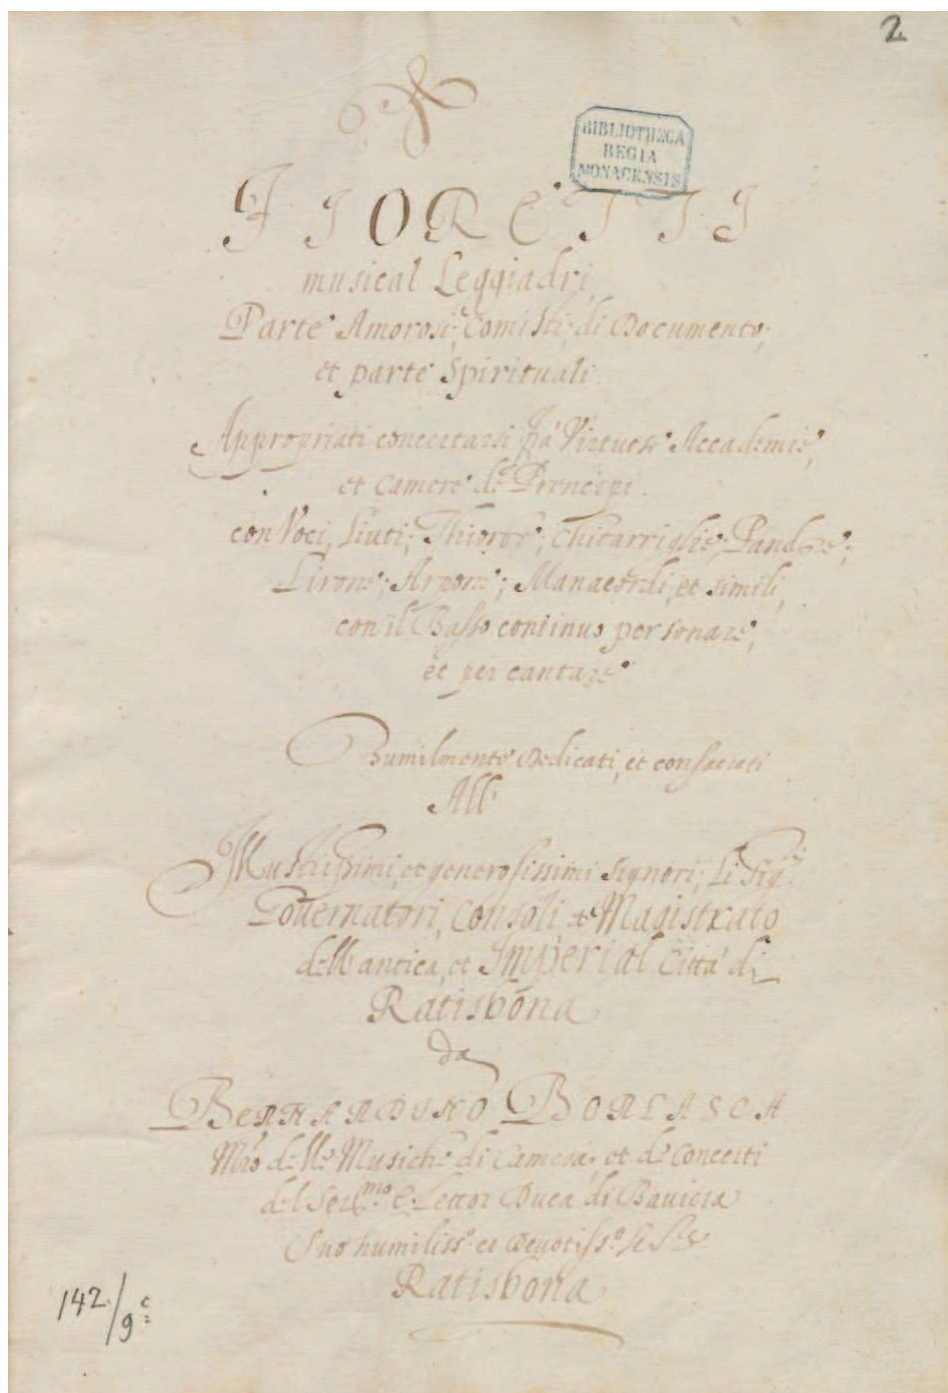 2
BIBLIOTHECA
REGIA
MONACENSIS
FIORETTI
musical Leggiadri,
Parte Amorosi; Comisti; di Documento;
et parte Spirituali.
Appropriati concertarsi frà Virtuose Accademie,
et Camere de Prencipi.
con Voci, Liuti; Thiorbe; Chitarriglie; Pandore;
Lirone; Arpone; Manacordi, et simili,
con il Basso continuo per sonare,
et per cantare
Humilmente Dedicati, et consacrati
All'
Illustrissimi, et generosissimi Signori; Li Sig.ri
Governatori, Consoli, et Magistrato
dell'antica, et Imperial Città di
Ratisbona
da
Bernardino Borlasca
Mro delle Musiche di Camera, et de Concerti
del Sermo Elettor Duca di Baviera
Suo humiliss.o et Devotiss.o
Ratisbona
142/9c